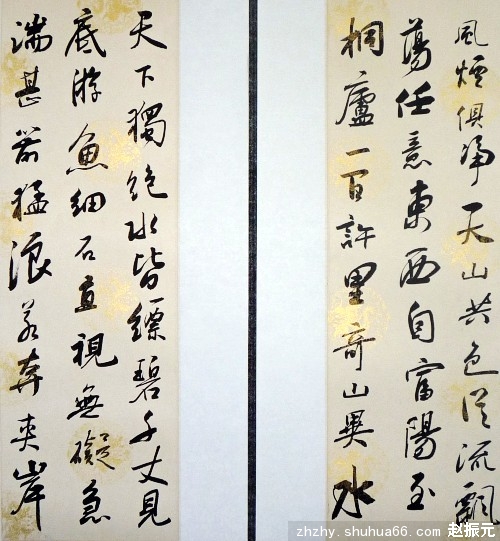 風煙俱淨天山共色從流飄
蕩任意東西自富陽至
桐廬一百許里奇山異水
天下獨絶水皆縹碧千丈見
底游魚細石直視無礙急
湍甚箭猛浪若奔夾岸
zhzhy.shuhua66.com 赵振元